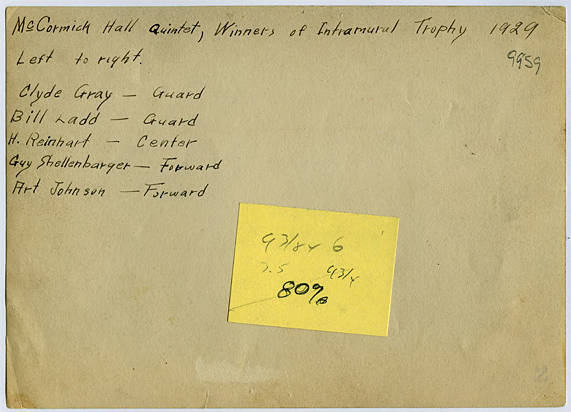 McCormick Hall Quintet, Winners of Intramural Trophy 1929
9959
Left to right.
Clyde Gray — Guard
Bill Ladd — Guard
H. Reinhart — Center
Guy Shellenbarger — Forward
Art Johnson — Forward
93/84 6
7.5 93/4
80%
2